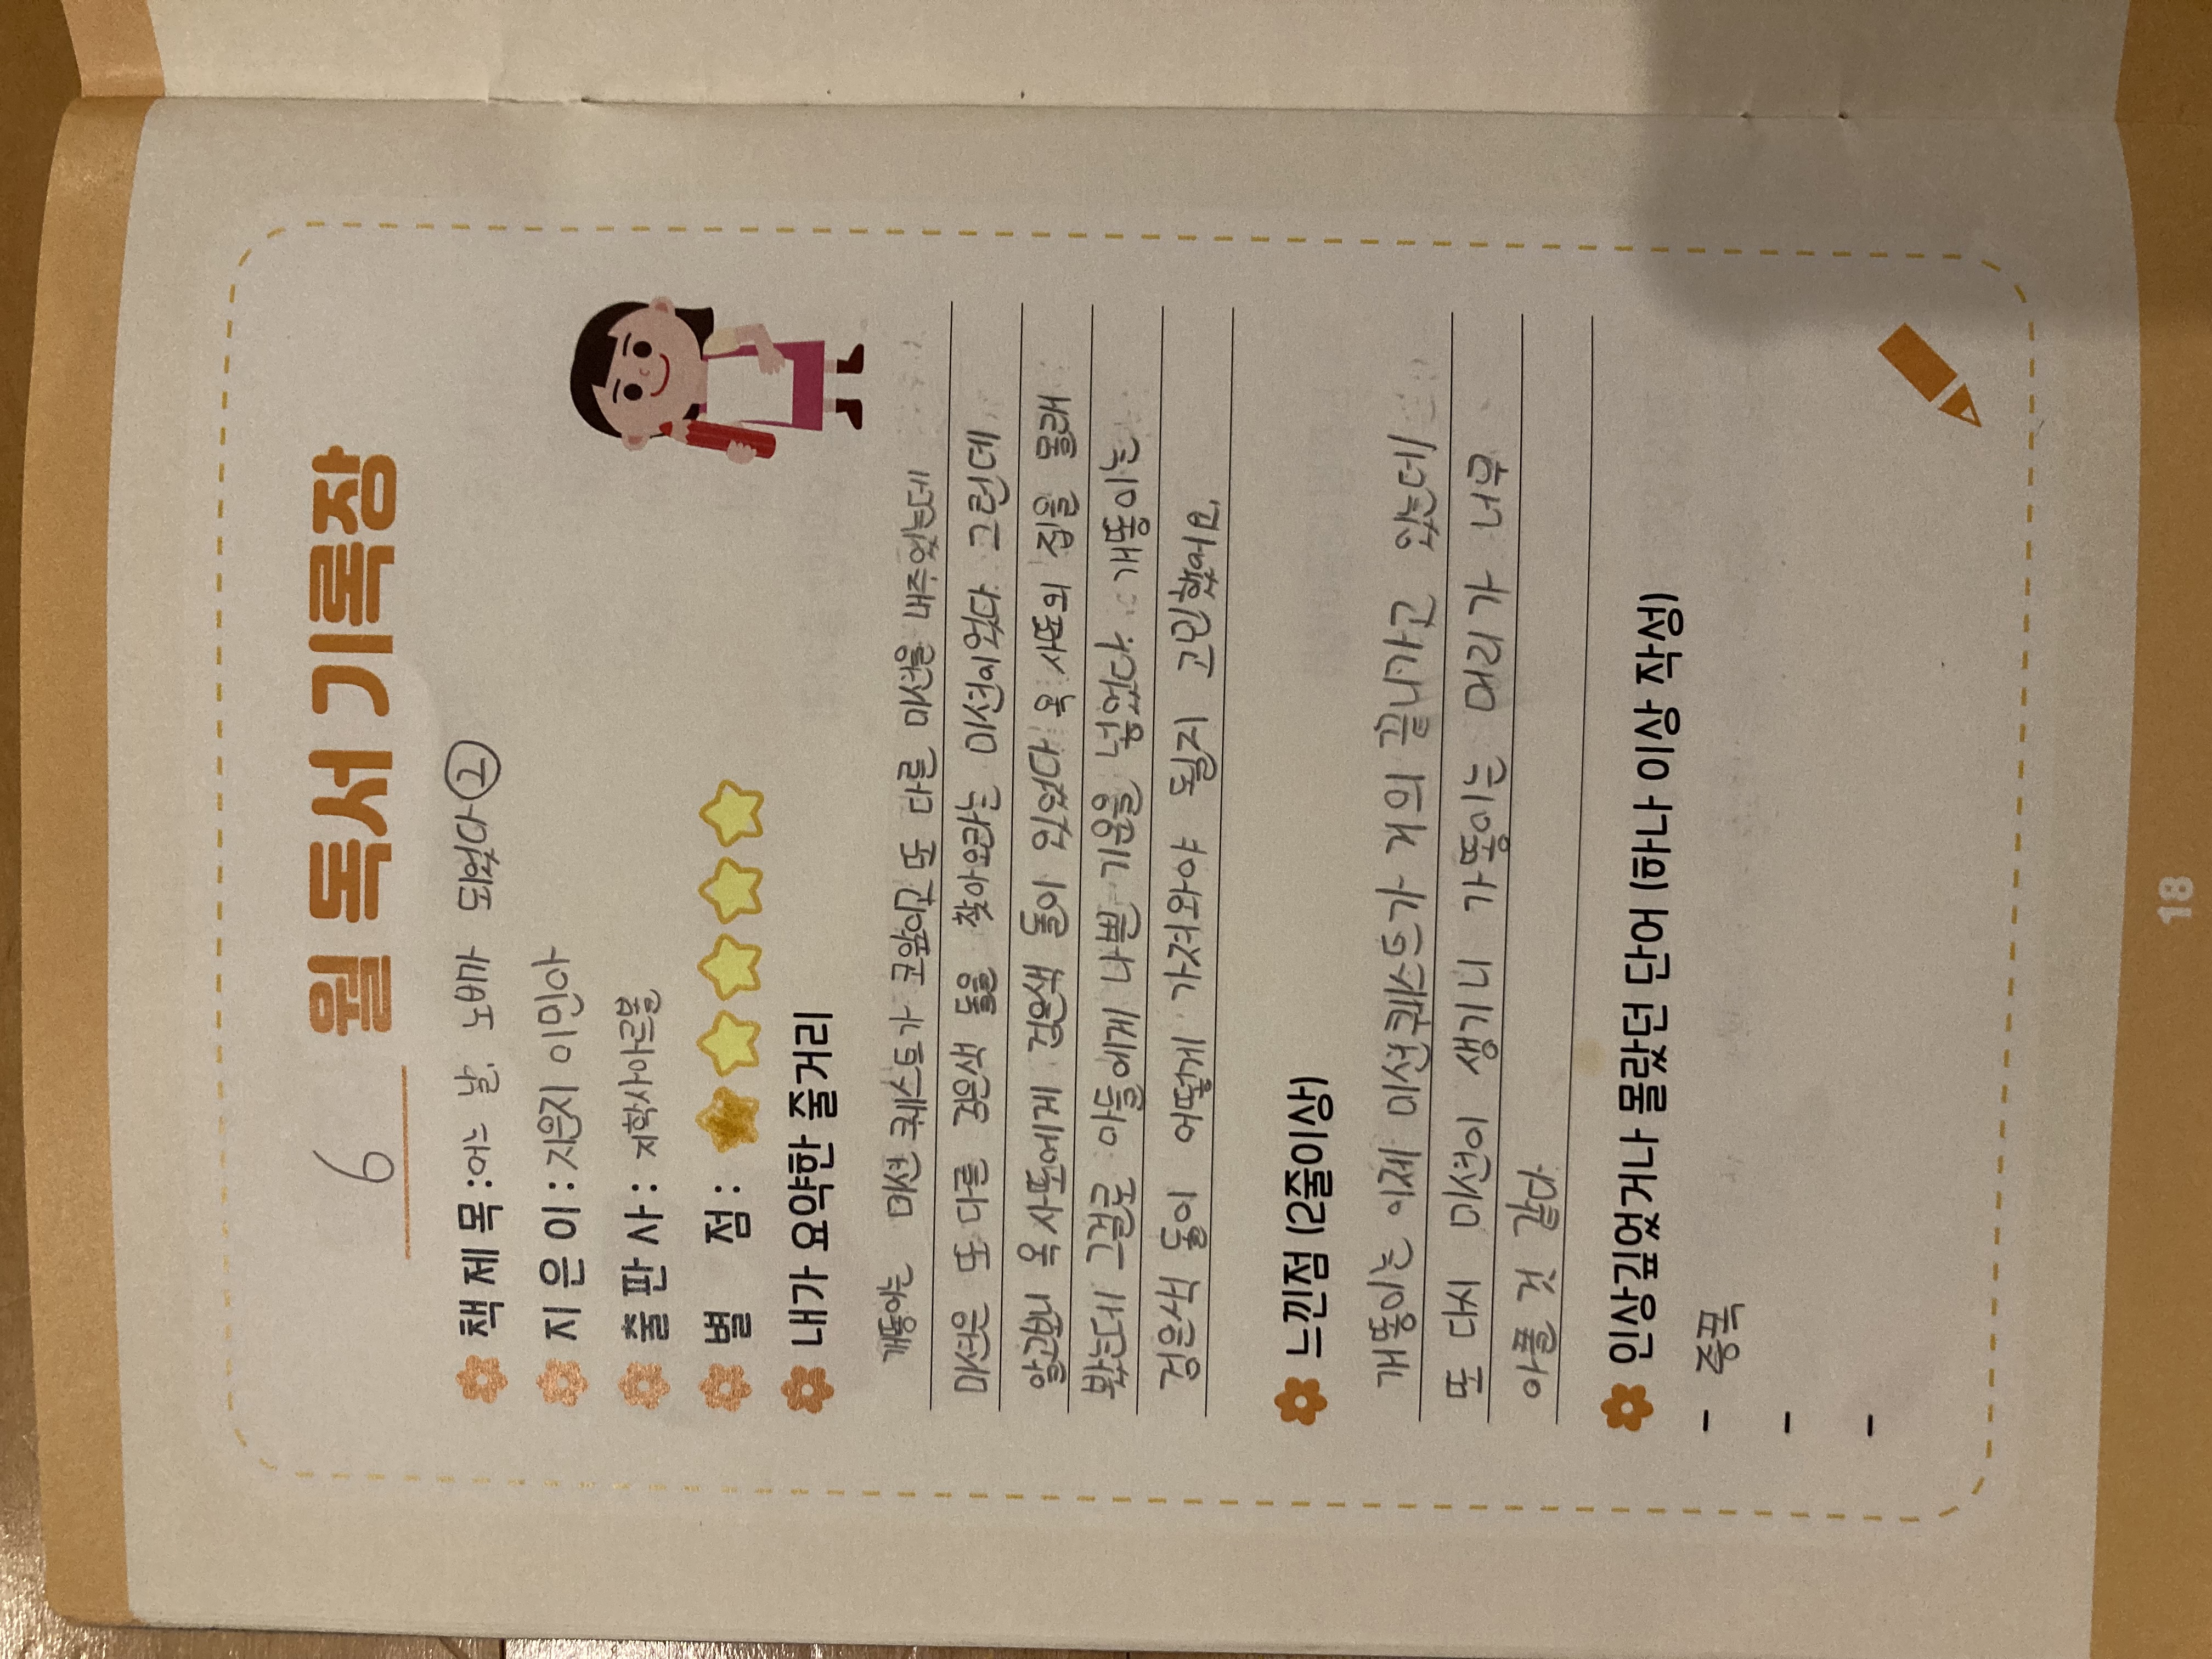 6 월 독서 기록장
책 제 목 : 어느 날, 노비가 되었다 ②
지 은 이 : 지은지 이민아
출 판 사 : 지학사아르볼
별 점 :
내가 요약한 줄거리
개똥이는 미션 퀘스트가 코앞이고 또 다른 미션을 내주었는데
미션은 또 다른 검은색 돌을 찾아오라는 미션이었다 그런데
알고보니 옥사또에게 검은색 돌이 있었다 옥 사또의 집을 몰래
봤는데 그걸로 아들에게 나쁜 기운을 넣었다. 개똥이는
검은색 돌이 어떻게 가져와야 될지 고민했어요.
느낀점 (2줄이상)
개똥이는 이제 미션퀘스트가 거의 끝나가고 있는데
또 다시 미션이 생기니 가똥이는 머리가 너무
아플 것 같다
인상깊었거나 몰랐던 단어 (하나 이상 작성)
- 증폭
-
-
18